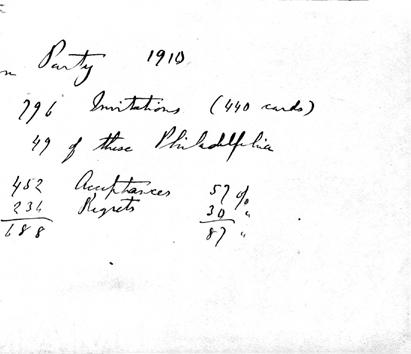 n Party 1910
796 Invitations (440 cards)
49 of these Philadelphia
452 Acceptances 57 %
236 Regrets 30 "
688 87 "